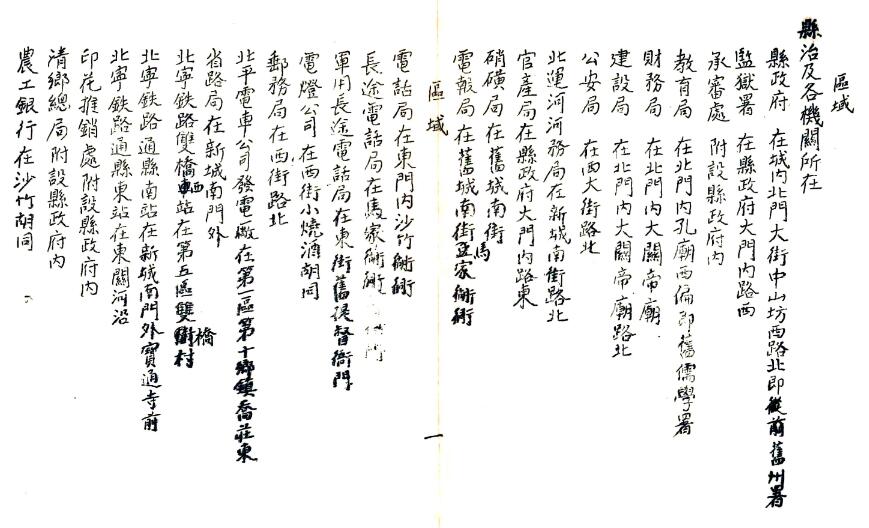 區域
縣治及各機關所在
縣政府 在城内北門大街中山坊西路北即從前舊州署
監獄署 在縣政府大門内路西
承審處 附設縣政府内
教育局 在北門内孔廟西偏即舊儒學署
財務局 在北門内大關帝廟
建設局 在北門内大關帝廟路北
公安局 在西大街路北
北運河河務局在新城南街路北
官產局在縣政府大門内路東
硝磺局在舊城南街
電報局在舊城南街馬家衚衕
區域
一
電話局在東門内沙竹衚衕
長途電話局在馬家衚衕
軍用長途電話局在東街舊提督衙門
電燈公司在西街小燒酒胡同
郵務局在西街路北
北平電車公司發電廠在第一區第十鄉鎮喬莊東
省路局在新城南門外
北寧鉄路雙橋車站在第五區雙橋村
北寧鉄路通縣南站在新城南門外寶通寺前
北寧鉄路通縣東站在東關河沿
印花推銷處附設縣政府内
清鄉總局附設縣政府内
農工銀行在沙竹胡同